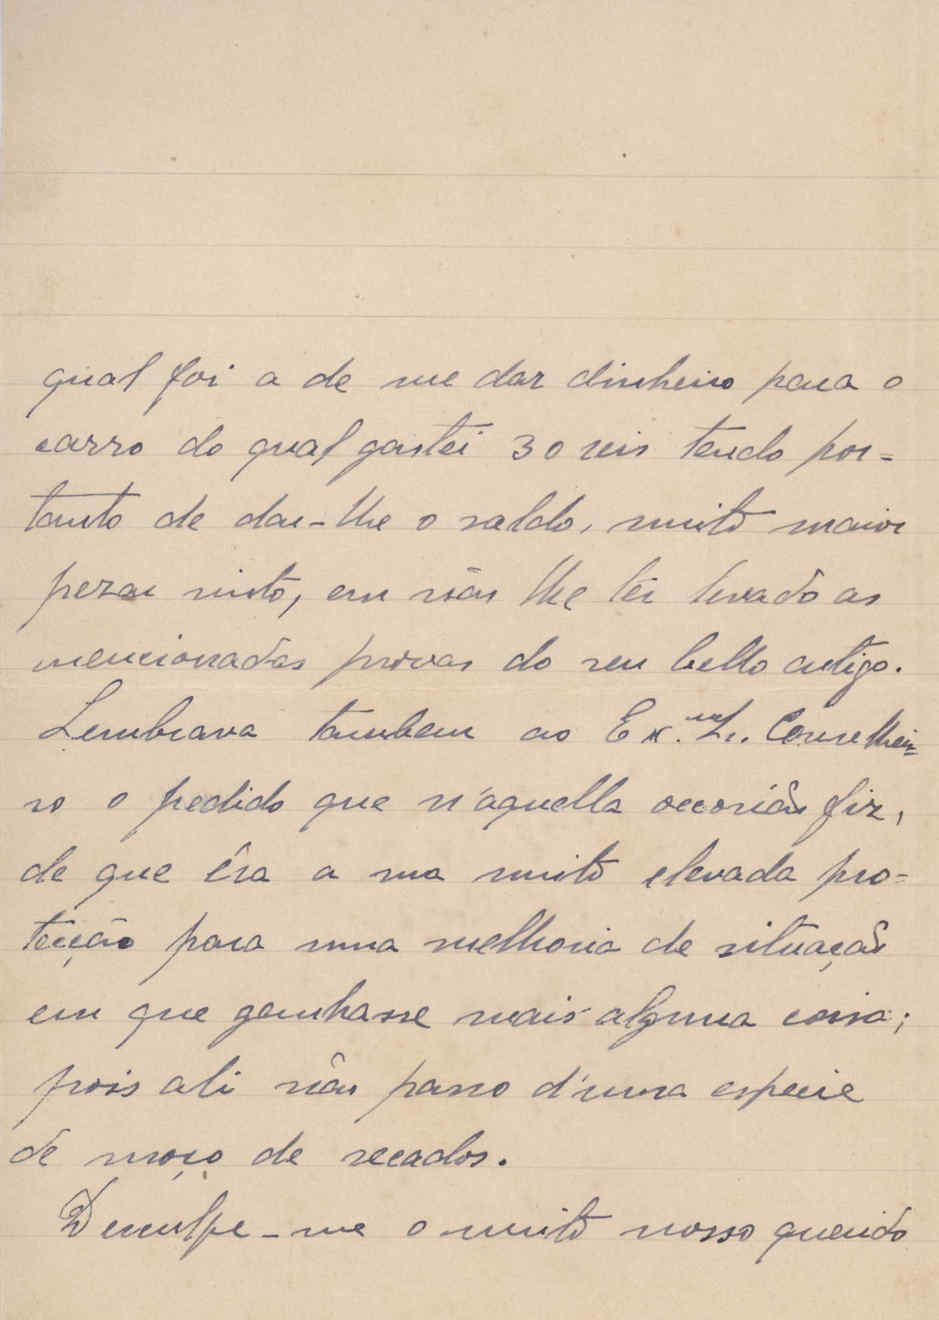 qual foi a de me dar dinheiro para o
carro do qual gastei 30 reis tendo por-
tanto de dar-lhe o saldo, muito maior
pezar sinto, em não lhe ter levado as
mencionadas provas do seu bello artigo.
Lembrava tambem ao Ex.mo Sr. Conselhei-
ro o pedido que n'aquella occasião fiz,
de que éra a sua muito elevada pro-
tecção para uma melhoria de situação
em que ganhasse mais alguma coisa;
pois ali não passo d'uma especie
de moço de recados.
Desculpe-me o muito nosso querido